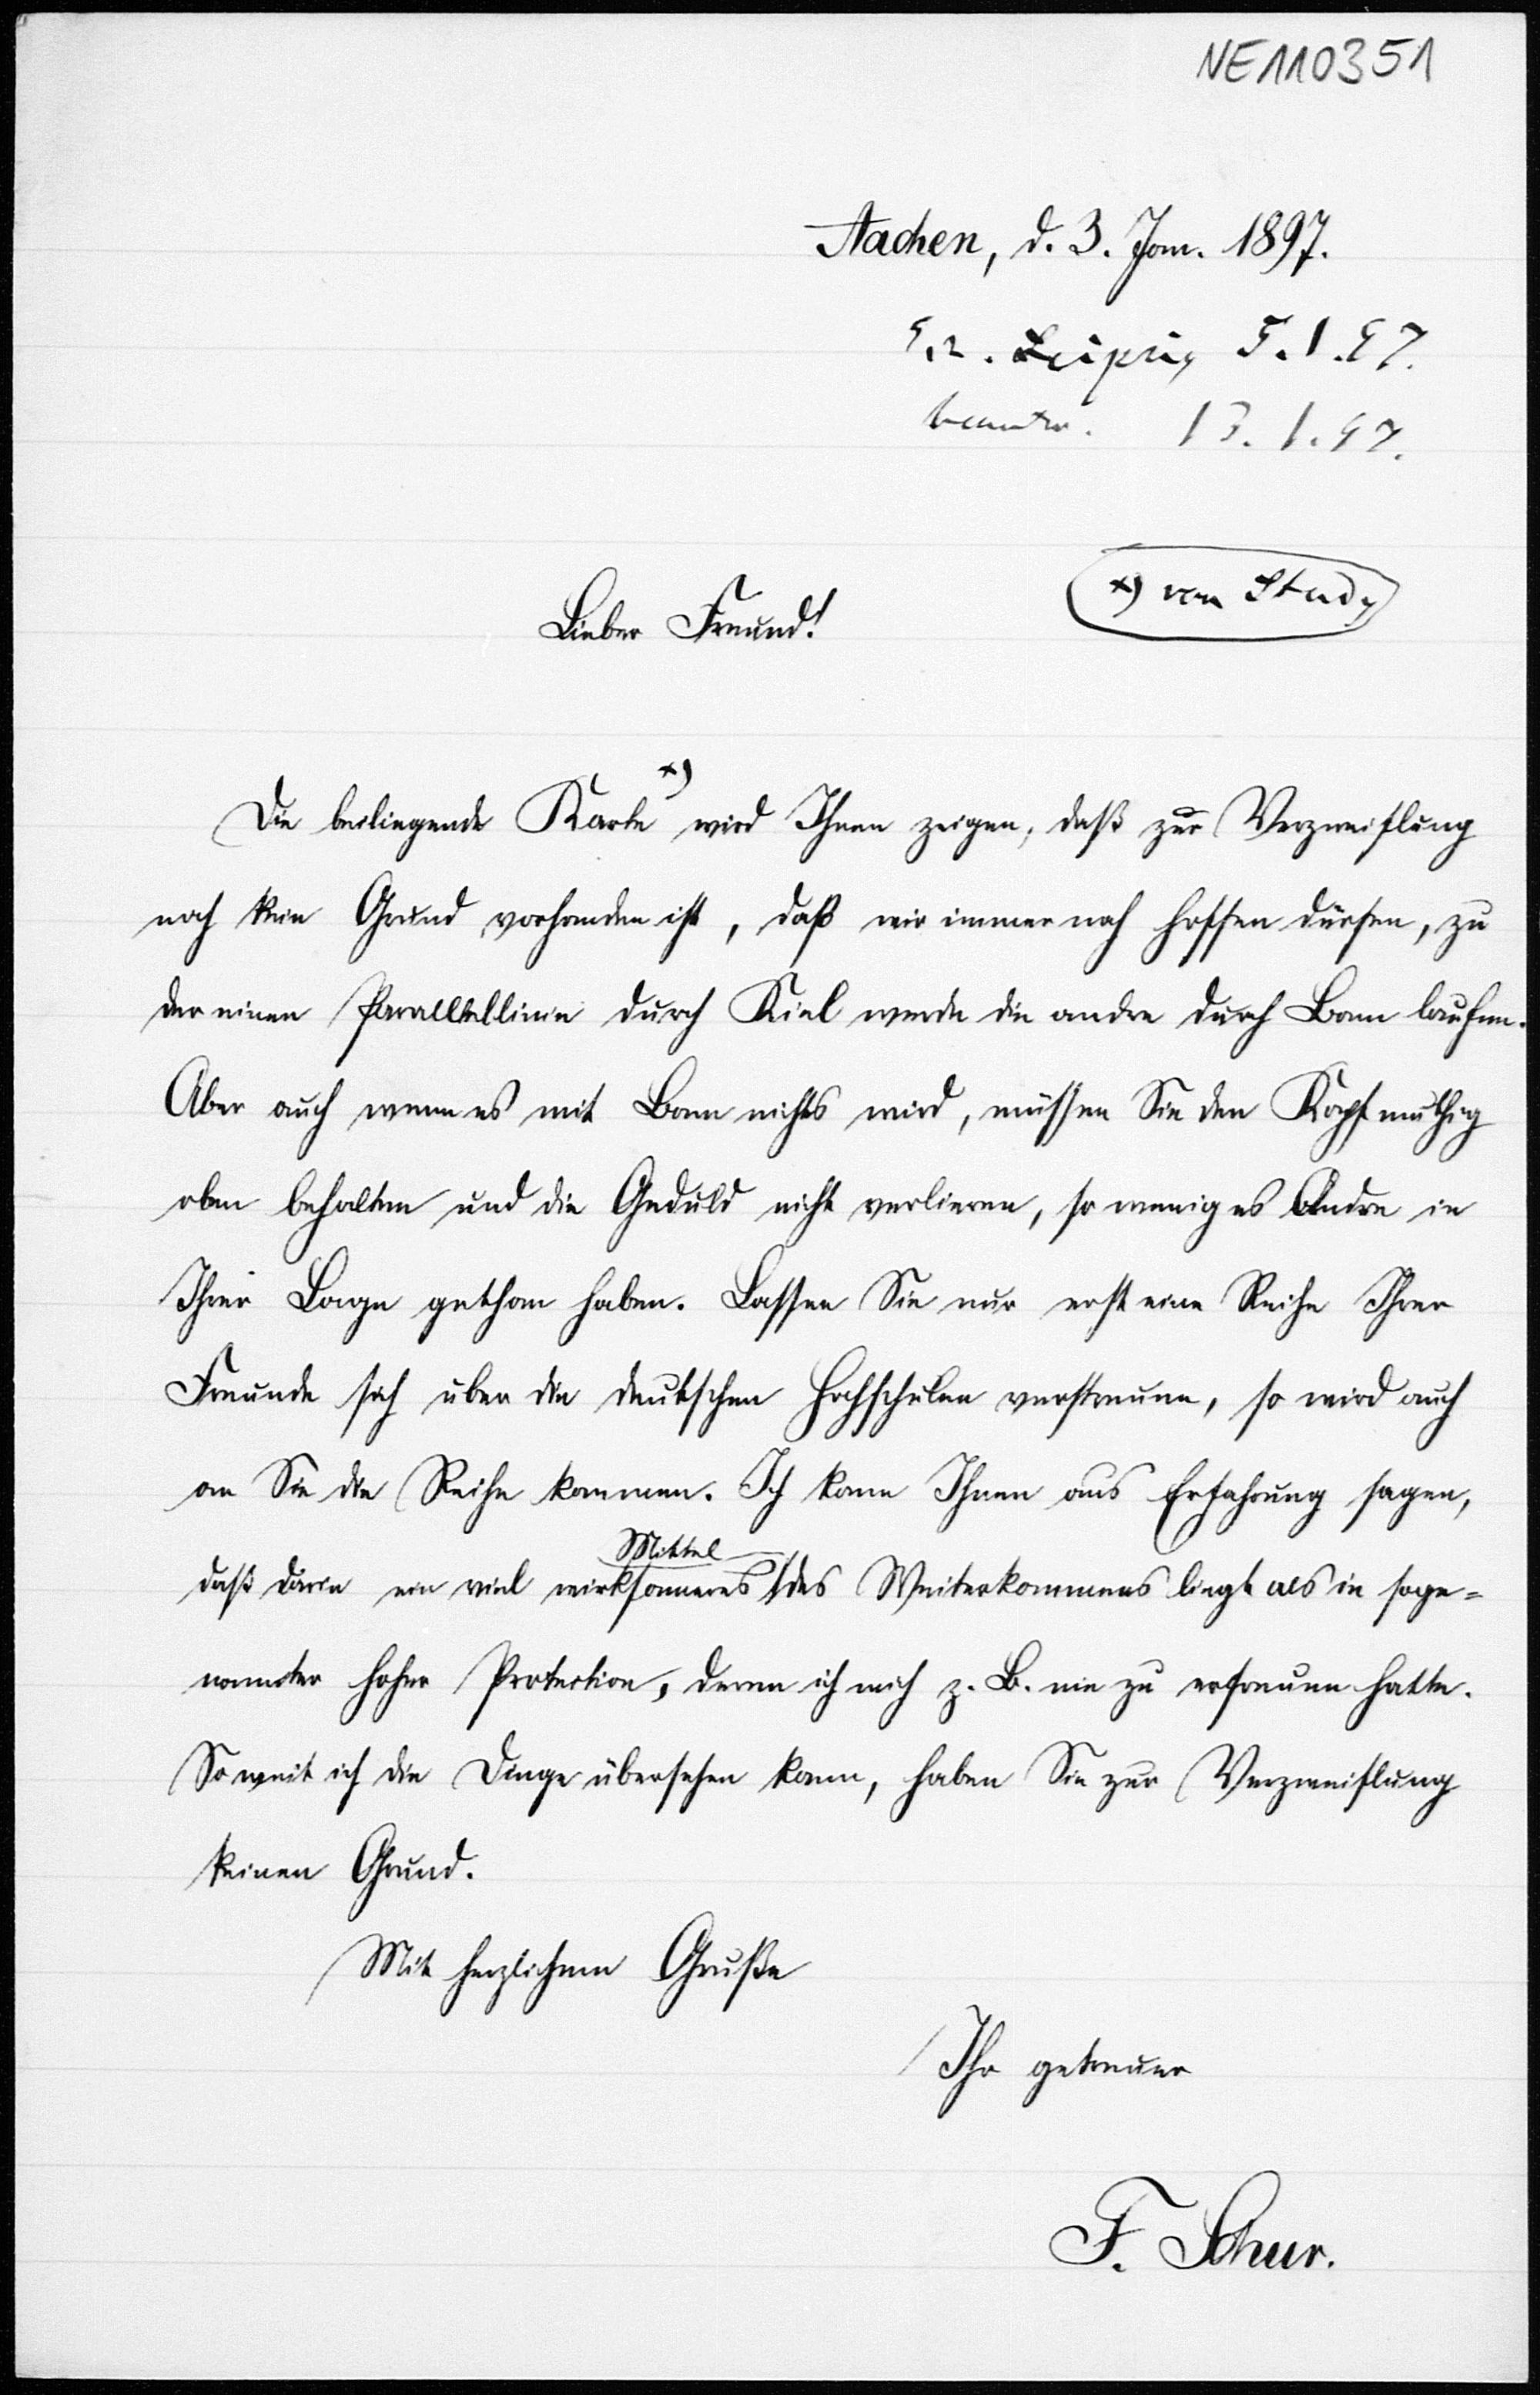 NE110351
Aachen, d. 3. Jan. 1897.
Leipzig 5.1.97.
beantw. 13.1.97.
x) von Study
Lieber Freund!
Die beiliegende Karte x) wird Ihnen zeigen, daß zur Verzweiflung
noch kein Grund vorhanden ist, daß wir immer noch hoffen dürfen, zu
der einen Parallellinie durch Kiel werde die andre durch Bonn laufen.
Aber auch wenn es mit Bonn nichts wird, müssen Sie den Kopf muthig
oben behalten und die Geduld nicht verlieren, so wenig es Andre in
Ihrer Lage gethan haben. Lassen Sie nur erst eine Reihe Ihrer
Freunde sich über die deutschen Hochschulen verstreuen, so wird auch
an Sie die Reihe kommen. Ich kann Ihnen aus Erfahrung sagen,
daß darin ein viel wirksameres Mittel des Weiterkommens liegt als in soge=
nannter hoher Protection, deren ich mich z. B. nie zu erfreuen hatte.
So weit ich die Dinge übersehen kann, haben Sie zur Verzweiflung
keinen Grund.
Mit herzlichem Gruße
Ihr getreuer
F. Schur.